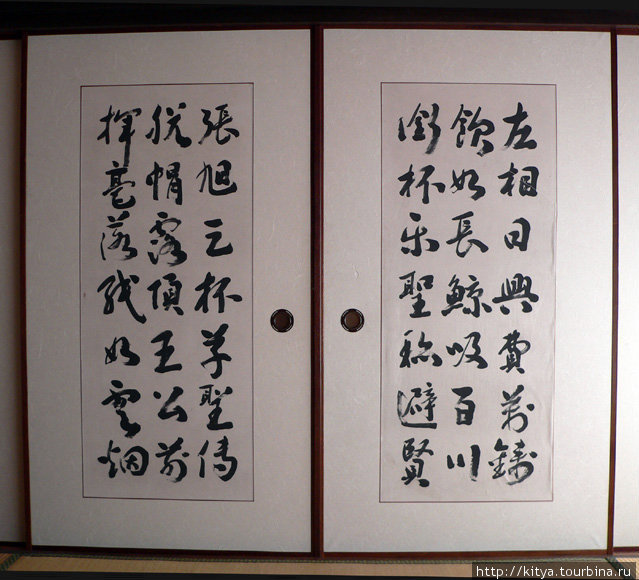 左相日興費萬錢
飲如長鯨吸百川
銜杯樂聖稱避賢
張旭三杯草聖傳
脱帽露頂王公前
揮毫落紙如雲烟
© https://kitya.tourbina.ru